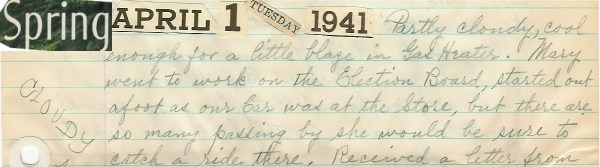 Spring APRIL 1 TUESDAY 1941 Partly cloudy, cool
enough for a little blaze in Gas Heater. Mary
went to work on the Election Board, started out
afoot as our Car was at the Store, but there are
so many passing by she would be sure to
catch a ride there. Received a letter from
CLOUDY